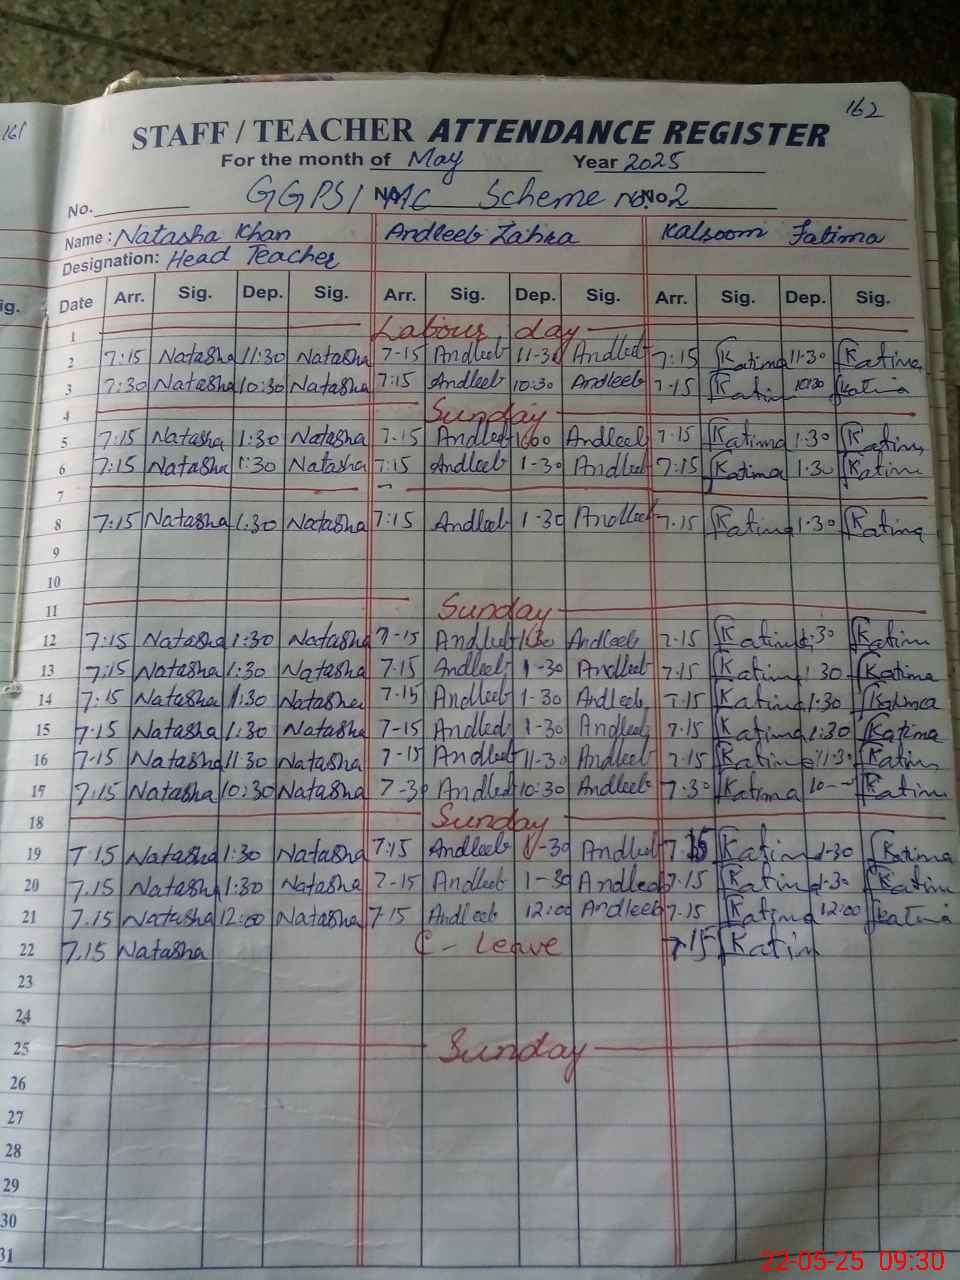 161
162
STAFF / TEACHER ATTENDANCE REGISTER
For the month of May Year 2025
No. GGPS/ MC Scheme No. 2
Name: Natasha Khan Andleeb Zahra Kalsoom Fatima
Designation: Head Teacher
ig. Date Arr. Sig. Dep. Sig. Arr. Sig. Dep. Sig. Arr. Sig. Dep. Sig.
1 Labour day
2 7:15 Natasha 11:30 Natasha 7-15 Andleeb 11-30 Andleeb 7:15 Katima 11-30 Katima
3 7:30 Natasha 10:30 Natasha 7:15 Andleeb 10:30 Andleeb 7-15 Katim 10:30 Katima
4 Sunday
5 7:15 Natasha 1:30 Natasha 7.15 Andleeb Andleeb 7-15 Katima 1-30 Katima
6 7:15 Natasha 1:30 Natasha 7:15 Andleeb 1-30 Andleeb 7:15 Katima 1.30 Katima
7
8 7:15 Natasha 1:30 Natasha 7:15 Andleeb 1-30 Andleeb 7.15 Katima 1-30 Katima
9
10
11 Sunday
12 7:15 Natasha 1:30 Natasha 7-15 Andleeb 1:30 Andleeb 7-15 Katima 1:30 Katima
13 7:15 Natasha 1:30 Natasha 7-15 Andleeb 1-30 Andleeb 7.15 Katima 1.30 Katima
14 7:15 Natasha 1:30 Natasha 7-15 Andleeb 1-30 Andleeb 7.15 Katima 1.30 Katima
15 7.15 Natasha 1:30 Natasha 7-15 Andleeb 1-30 Andleeb 7.15 Katima 1:30 Katima
16 7-15 Natasha 11:30 Natasha 7-15 Andleeb 11-30 Andleeb 7.15 Katima 11-30 Katim
17 7:15 Natasha 10:30 Natasha 7-30 Andleeb 10:30 Andleeb 7.30 Katima 10-- Katim
18 Sunday
19 7.15 Natasha 1:30 Natasha 7:15 Andleeb 1-30 Andleeb 7.15 Katima 1-30 Katima
20 7.15 Natasha 1:30 Natasha 7-15 Andleeb 1-30 Andleeb 7-15 Katima 1-30 Katim
21 7.15 Natasha 12:00 Natasha 7-15 Andleeb 12:00 Andleeb 7-15 Katima 12:00 Katima
22 7.15 Natasha C - Leave 7.15 Katim
23
24
25 Sunday
26
27
28
29
30
31
22-05-25 09:30